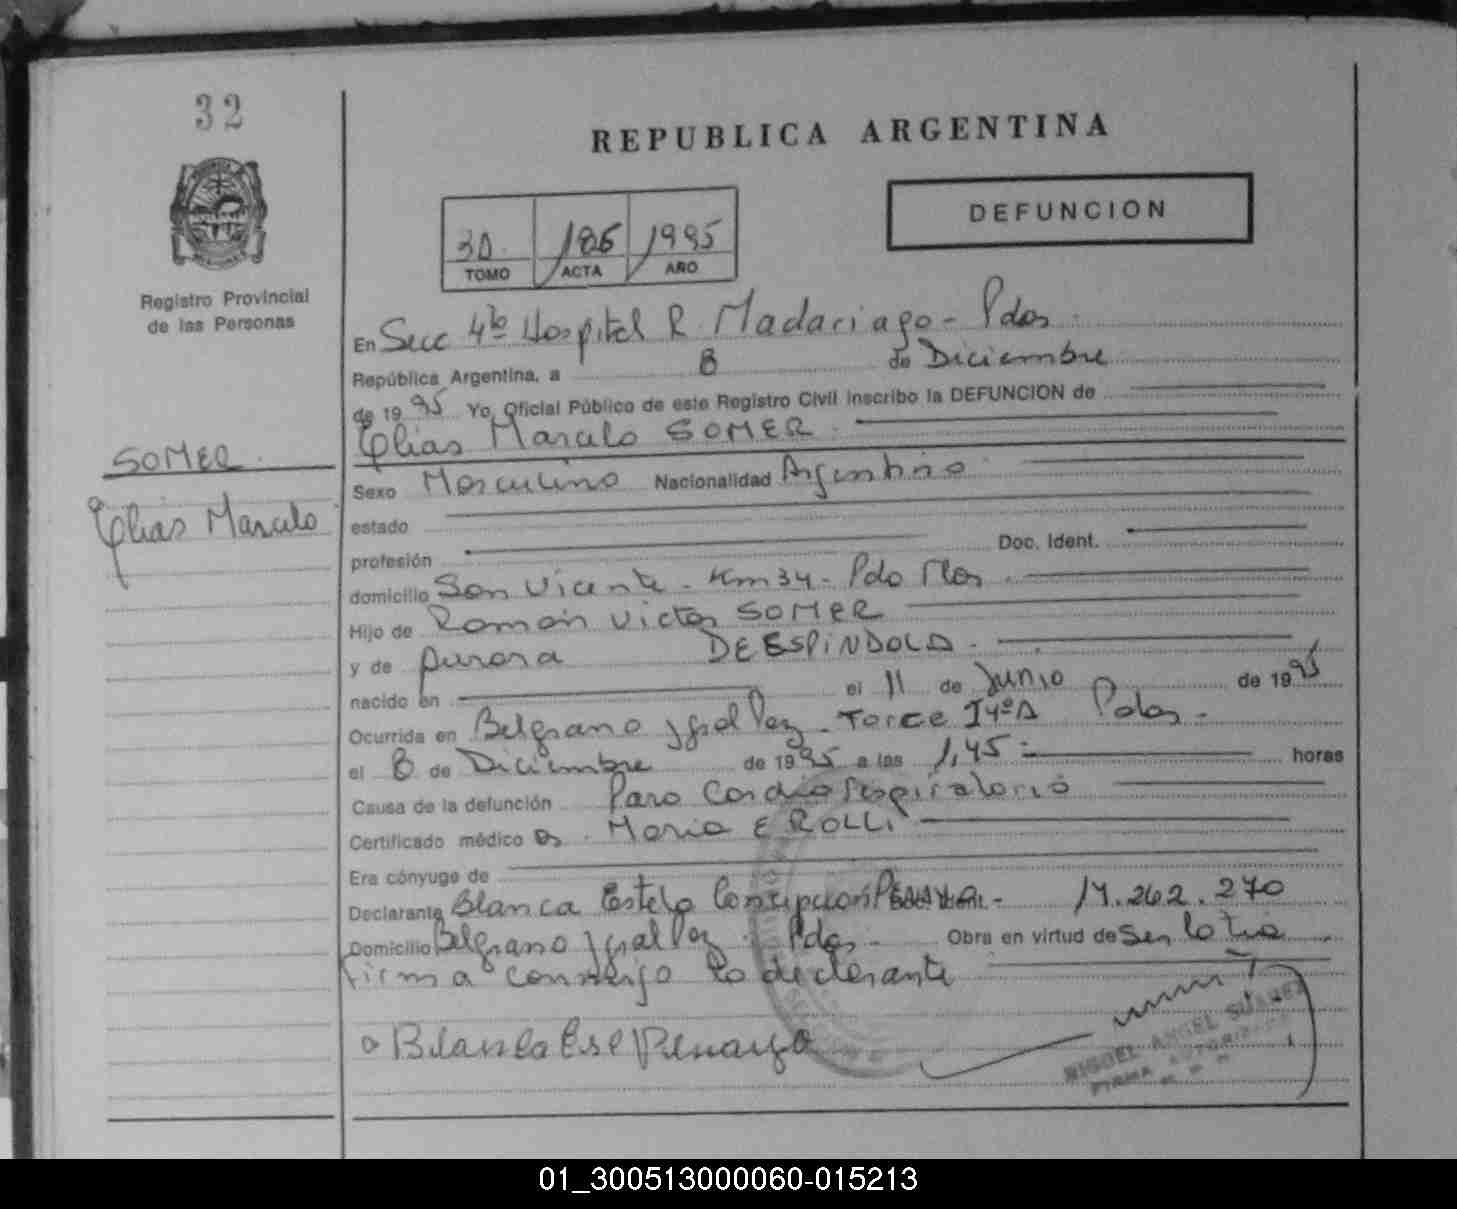 32
REPUBLICA ARGENTINA
DEFUNCION
3D. 186 1995
TOMO ACTA AÑO
Registro Provincial
de las Personas
En Secc 4ta Hospital R. Madariaga - Pdas
República Argentina, a 8 de Diciembre
de 1995 Yo, Oficial Público de este Registro Civil inscribo la DEFUNCION de
Elias Marcelo SOMER
SOMER
Elias Marcelo
Sexo Masculino Nacionalidad Argentino
estado
profesión Doc. Ident.
domicilio San Vicente - Km 34 - Pdo Mnes
Hijo de Ramón Victor SOMER
y de Aurora DE ESPINDOLA
nacido en el 11 de Junio de 1995
Ocurrida en Belgrano y gral Paz - Torre I 4º A Pdas -
el 8 de Diciembre de 1995 a las 1,45 horas
Causa de la defunción Paro Cardio Respiratorio
Certificado médico Maria E ROLLI
Era cónyuge de
Declarante Blanca Estela Concepcion 17.262.270
Domicilio Belgrano y gral Paz Pdas - Obra en virtud de Ser la tia
firma conmigo la declarante
MIGUEL ANGEL SUAREZ
FIRMA AUTORIZADA
01_300513000060-015213